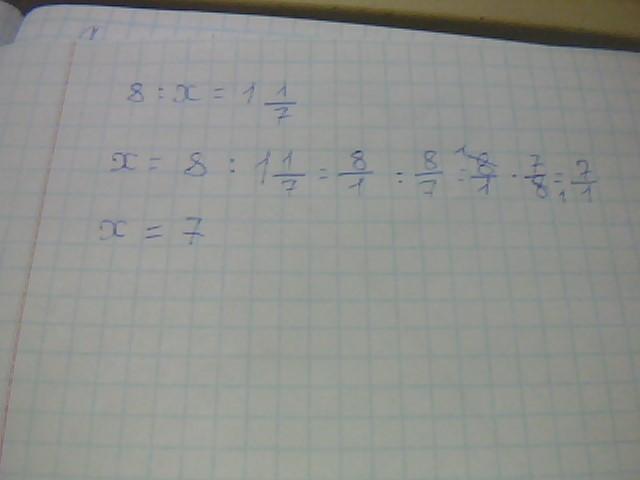 8 : x = 1 1/7
x = 8 : 1 1/7 = 8/1 : 8/7 = 8/1 · 7/8 = 7/1
x = 7